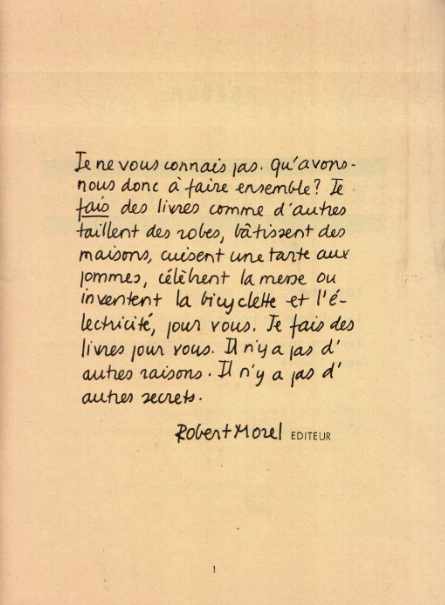 Je ne vous connais pas. Qu'avons-
nous donc à faire ensemble? Je
fais des livres comme d'autres
taillent des robes, bâtissent des
maisons, cuisent une tarte aux
pommes, célèbrent la messe ou
inventent la bicyclette et l'é-
lectricité, pour vous. Je fais des
livres pour vous. Il n'y a pas d'
autres raisons. Il n'y a pas d'
autres secrets.
Robert Morel EDITEUR
1